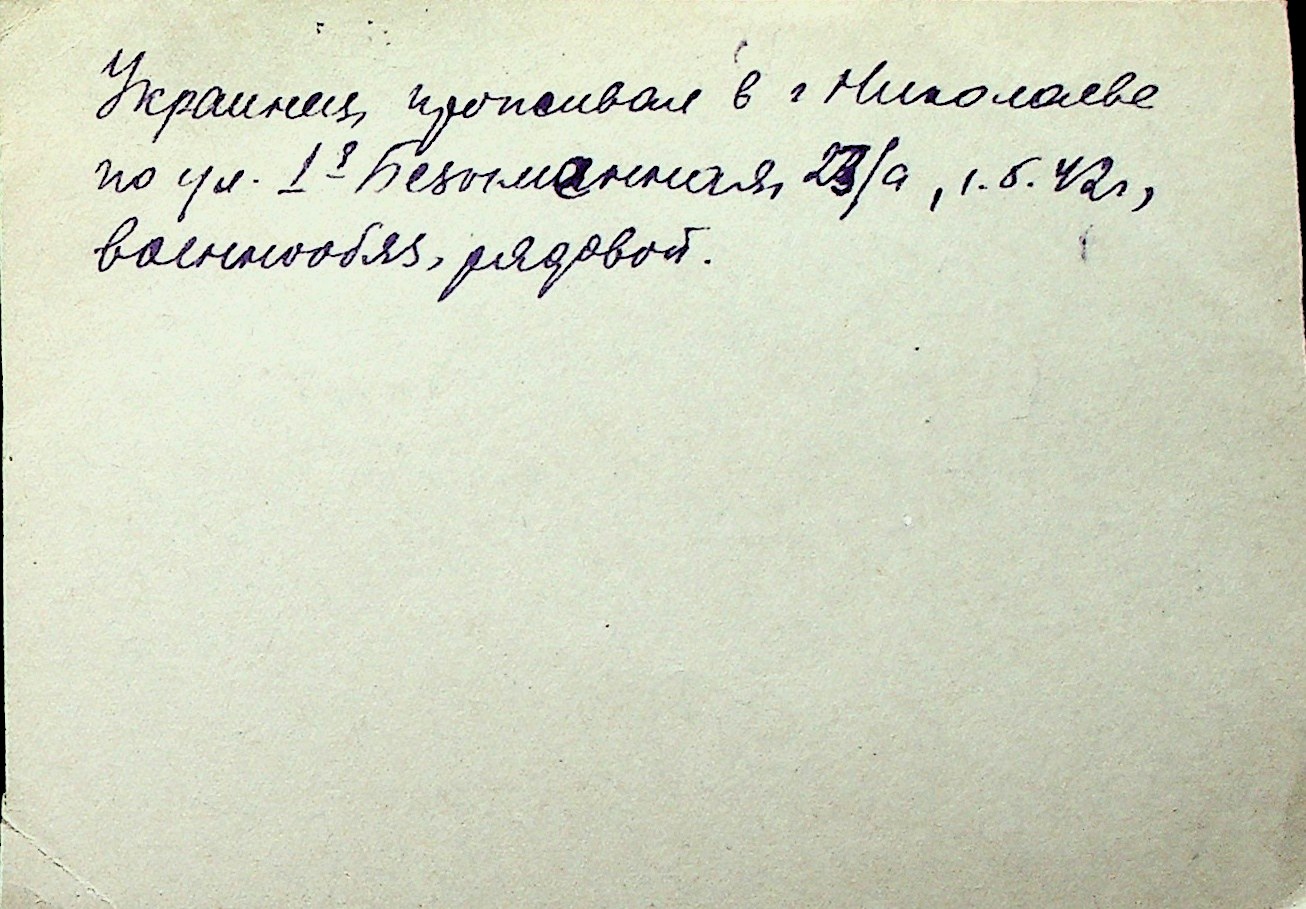 Украинец, проживал в г Николаеве
по ул. 1я Безыменная, 23/а, 1.5.42г,
военнообяз, рядовой.